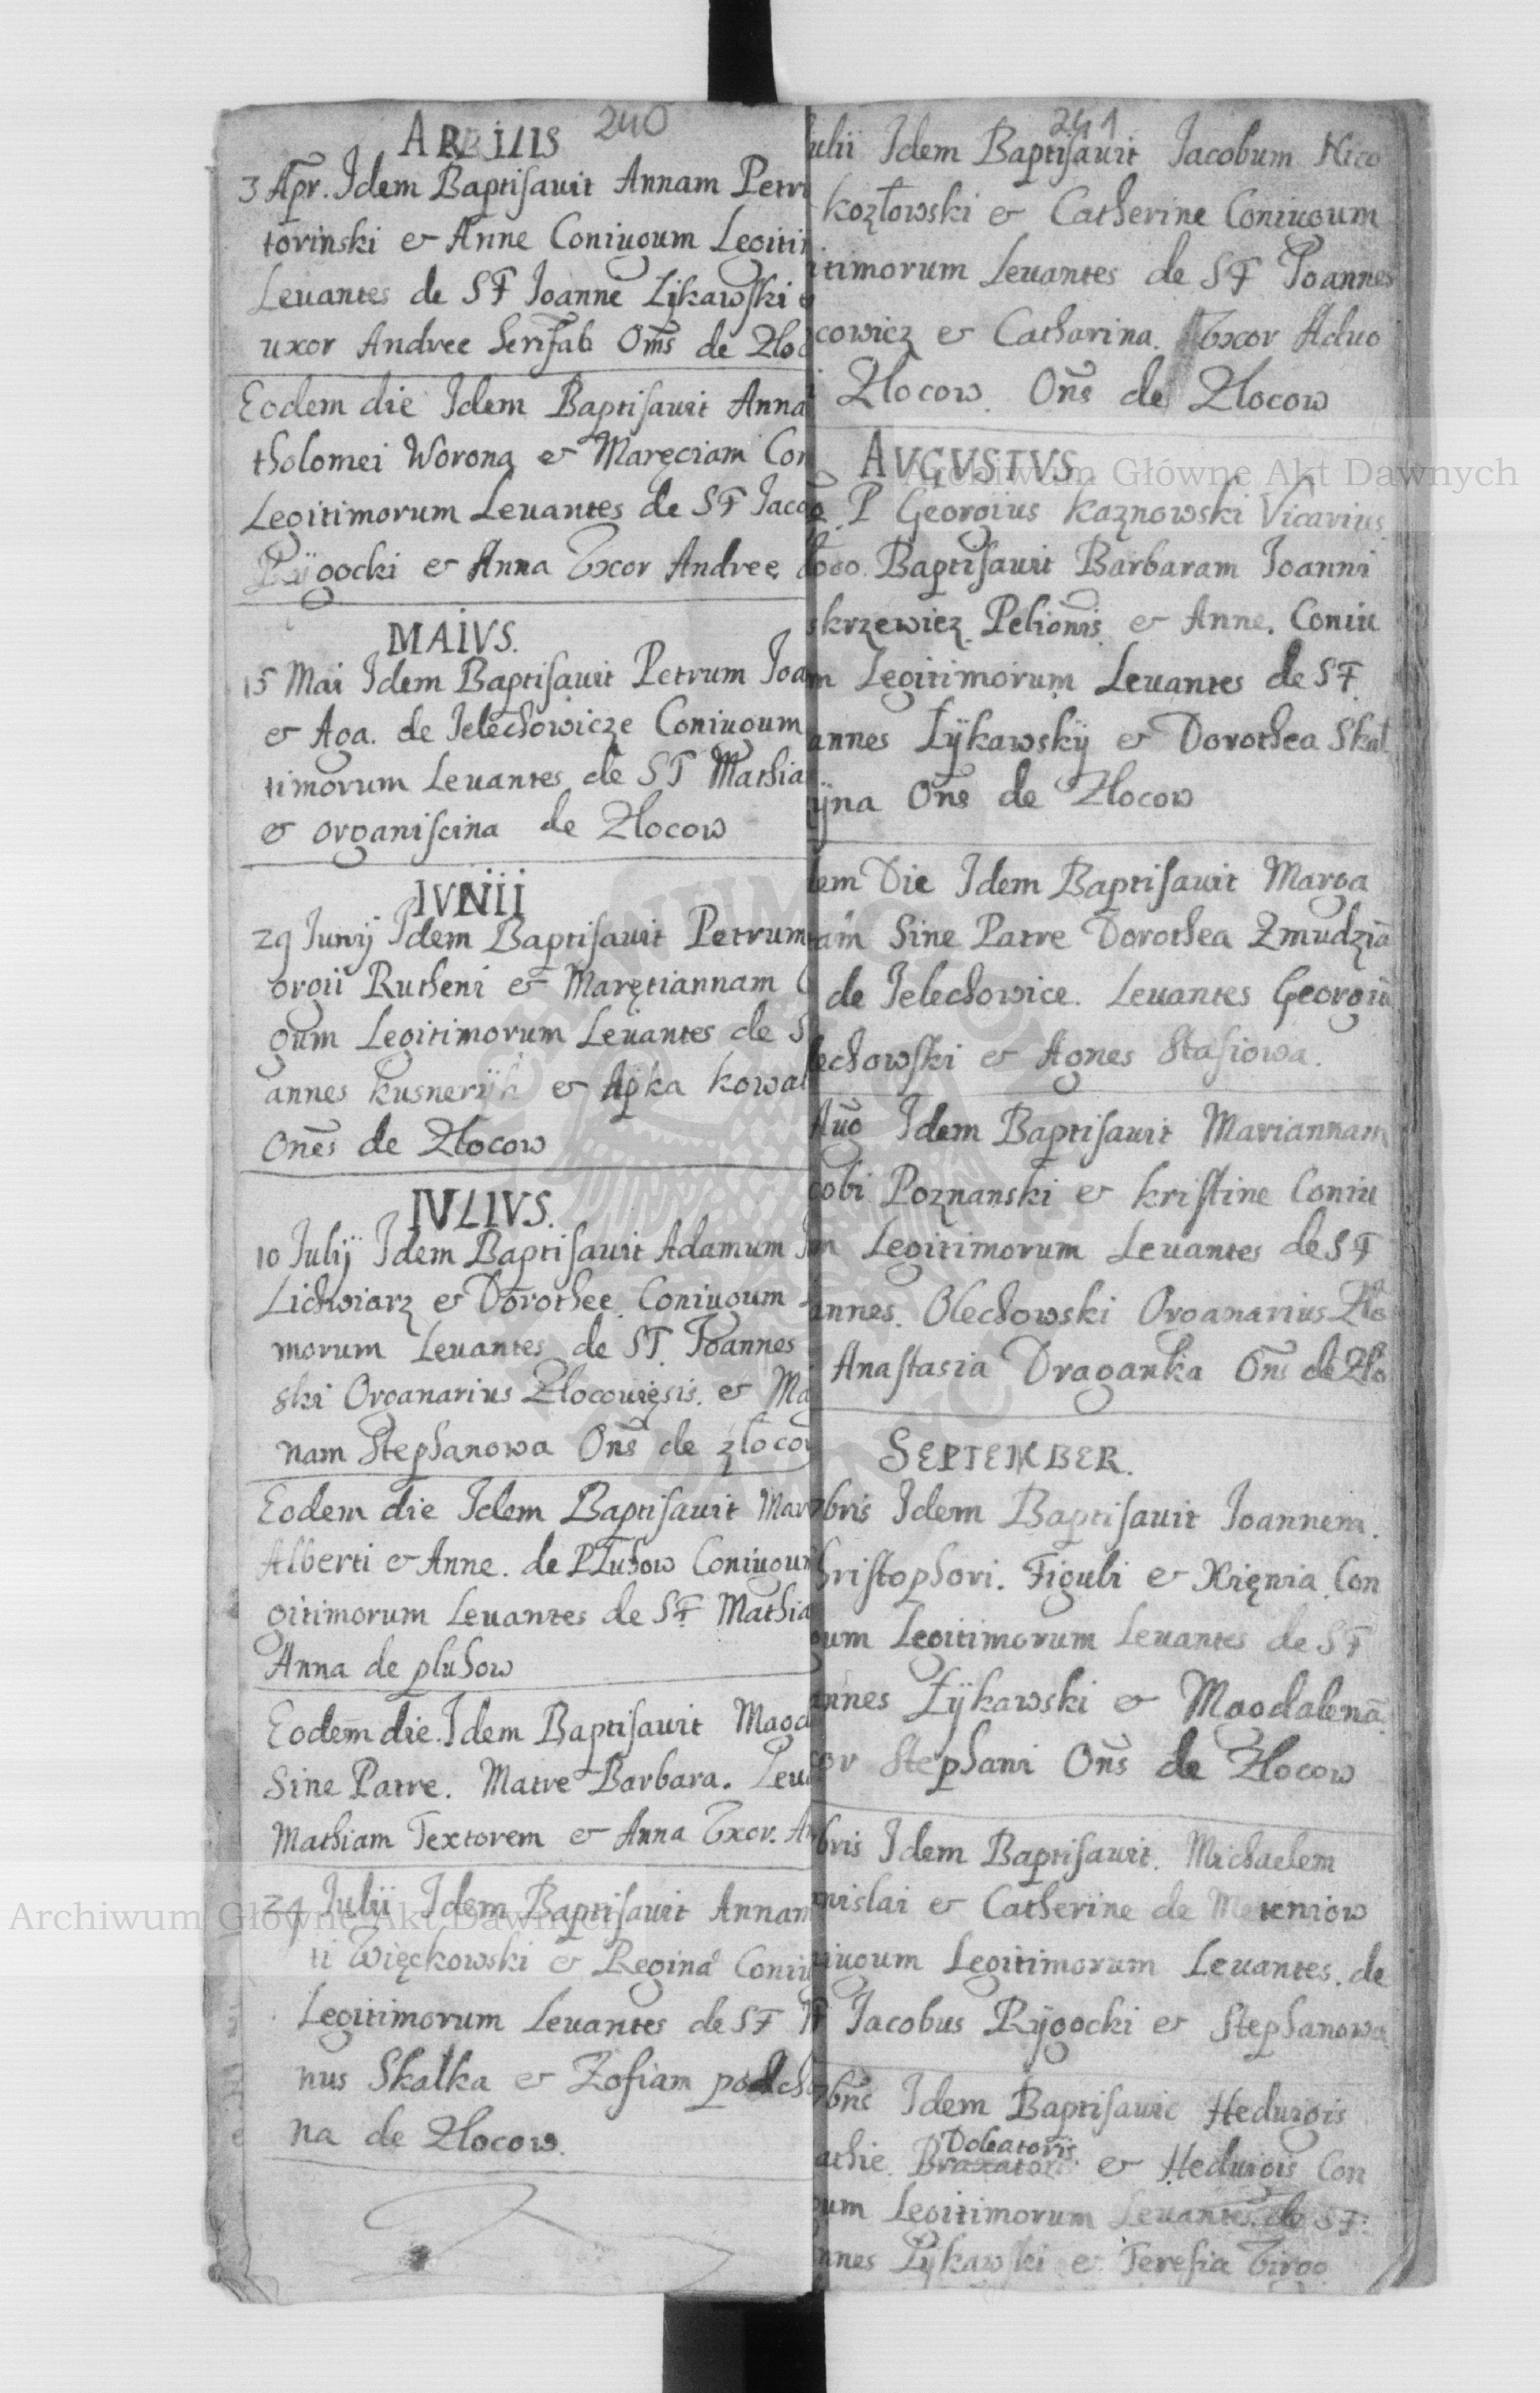 240
APRILIS
3 Apr. Idem Baptisauit Annam Petri
torinski & Anne Coniugum Legitim
Leuantes de SF Ioanne Zÿkawski &
uxor Andree Oms de Zloc
Eodem die Idem Baptisauit Anna
tholomei Worona & Maręciam Con
Legitimorum Leuantes de SF Jaco
Rÿgocki & Anna Vxor Andree
MAIVS.
15 Mai Idem Baptisauit Petrum Ioa
& Aga. de Ielechowicze Coniugum
timorum Leuantes de SF Mathia
& organiscina de Zlocow
IVNII
29 Iunij Idem Baptisauit Petrum
orgii Rutheni & Maręciannam C
gum Legitimorum Leuantes de S
annes kusnerÿk & Apka kowal
Ones de Zlocow
IVLIVS.
10 Iulij Idem Baptisauit Adamum
Lichwiarz & Dorothee Coniugum
morum Leuantes de SF. Ioannes
ski Organarius Zlocouięsis. & Ma
nam Stephanowa Ons de złocow
Eodem die Idem Baptisauit Mar
Alberti & Anne. de Pluhow Coniugum
gitimorum Leuantes de SF Mathia
Anna de pluhow
Eodem die. Idem Baptisauit Magd
Sine Patre. Matre Barbara. Leua
Mathiam Textorem & Anna Vxor. An
24 Iulii Idem Baptisauit Annam
ti Więckowski & Regina Coniu
Legitimorum Leuantes de SF
nus Skalka & Zofiam podcho
na de Zlocow.
241
Iulii Idem Baptisauit Iacobum Nico
kozłowski & Catherine Coniugum
itimorum Leuantes de SF Ioannes
cowicz & Catharina. Vxor Aduo
i Zlocow. Ons de Zlocow
AVGVSTVS
P Georgius Kaznowski Vicarius
Baptisauit Barbaram Ioanni
skrzewicz Pelionis & Anne. Coniu
m Legitimorum Leuantes de SF.
annes Zÿkawskÿ & Dorothea Skal
ÿna Ons de Zlocow
dem Die Idem Baptisauit Marga
tam Sine Patre Dorothea Zmudzia
de Ielechowice. Leuantes Georgiu
lechowski & Agnes Stasiowa.
Aug Idem Baptisauit Mariannam
cobi Poznanski & kristine Coniu
m Legitimorum Leuantes de SF
annes. Olechowski Organarius Zlo
Anastasia Draganka Ons de Zlo
SEPTEMBER.
7bris Idem Baptisauit Ioannem.
hristophori. Figuli & Xięnia Con
gum Legitimorum Leuantes de SF
annes Zÿkawski & Magdalena
xor Stephani Ons de Zlocow
bris Idem Baptisauit. Michaelem
nislai & Catherine de Meteniow
niugum Legitimorum Leuantes. de
SF Iacobus Rÿgocki & Stephanowa
7bris Idem Baptisauit Heduigis
Doleatoris
athie. Braxatoris & Heduigis Con
gum Legitimorum Leuantes. de SF.
nnes Zÿkawski & Teresia
Archiwum Główne Akt Dawnych
Archiwum Główne Akt Dawnych